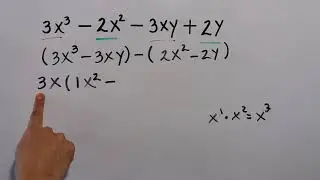 3x³ − 2x² − 3xy + 2y
(3x³ − 3xy) − (2x² − 2y)
3x(1x² −
x¹ · x² = x³